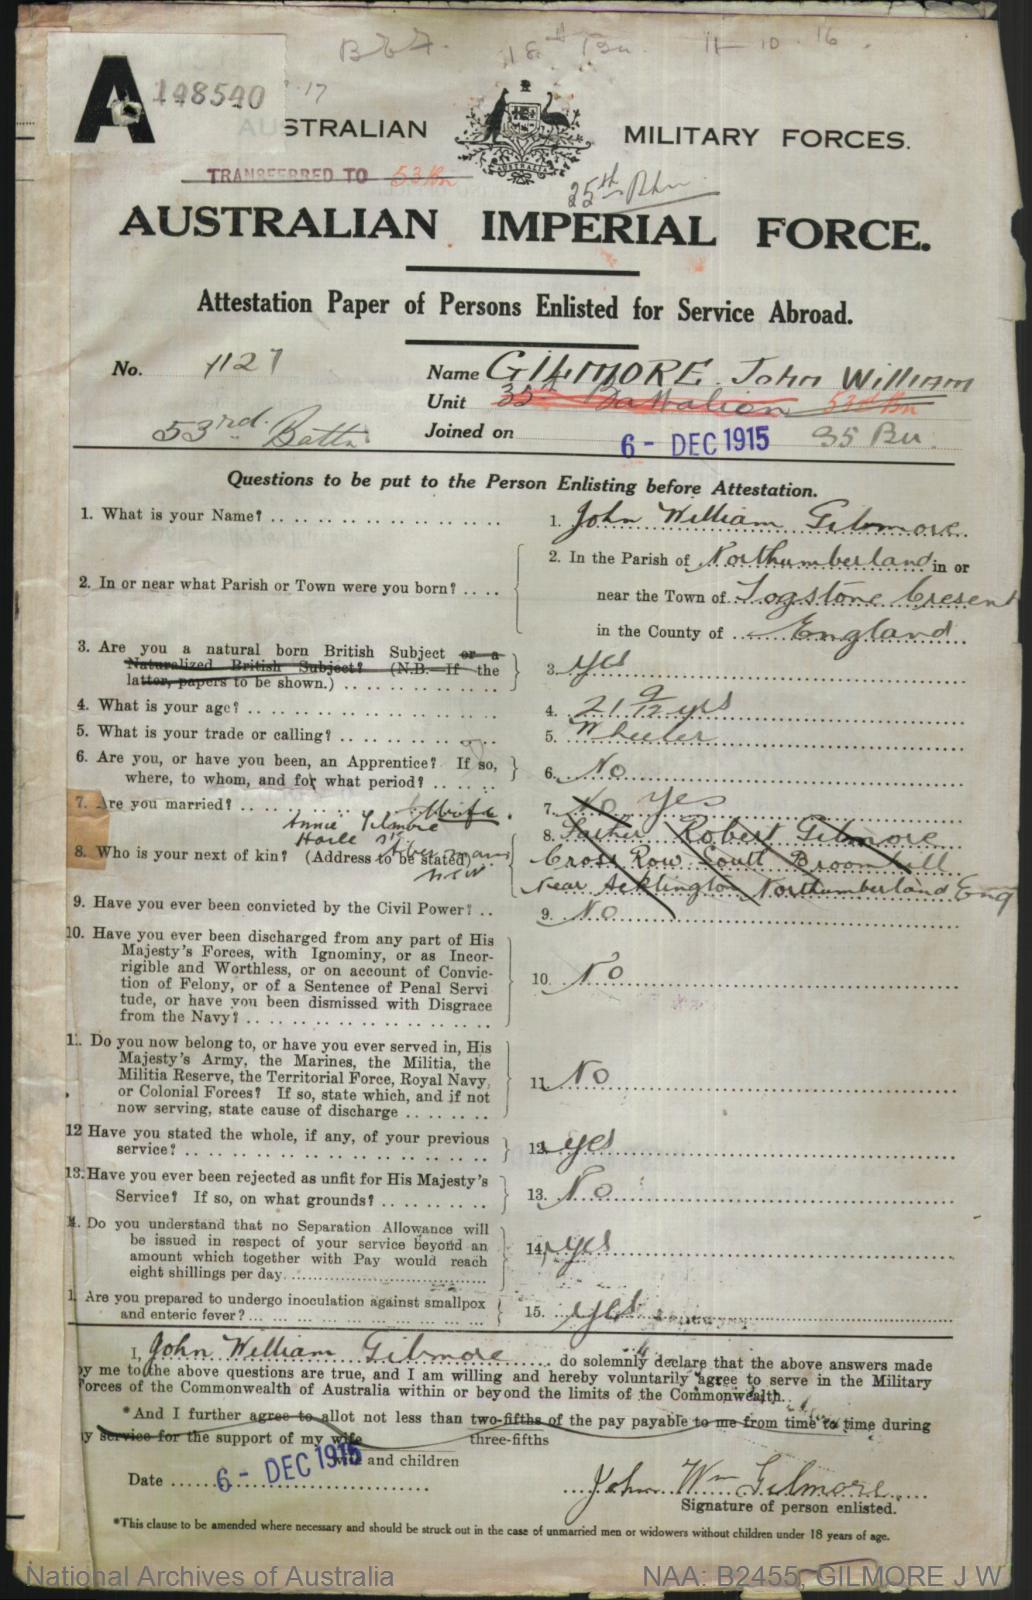 B.E.F. 18th Bn. 11-10.16.
A 198540 17
AUSTRALIAN MILITARY FORCES.
AUSTRALIA
TRANSFERRED TO 53 Bn
35th Bn
AUSTRALIAN IMPERIAL FORCE.
Attestation Paper of Persons Enlisted for Service Abroad.
No. 1127 Name GILMORE John William
Unit 35th Battalion 53rd Bn
53rd. Battn Joined on 6 - DEC 1915 35 Bn.
Questions to be put to the Person Enlisting before Attestation.
1. What is your Name? 1. John William Gilmore
2. In or near what Parish or Town were you born? 2. In the Parish of Northumberland in or
near the Town of Togstone Cresent
in the County of England
3. Are you a natural born British Subject or a
Naturalized British Subject? (N.B.—If the 3. yes
latter, papers to be shown.)
4. What is your age? 4. 21 9/12 yrs
5. What is your trade or calling? 5. Wheeler
6. Are you, or have you been, an Apprentice? If so,
where, to whom, and for what period? 6. No
7. Are you married? 7. No yes
Annie Gilmore Wife.
8. Who is your next of kin? (Address to be stated) 8. Father Robert Gilmore
N.S.W Cross Row South Broomhill
Near Acklington Northumberland Eng
9. Have you ever been convicted by the Civil Power? 9. No
10. Have you ever been discharged from any part of His
Majesty's Forces, with Ignominy, or as Incor-
rigible and Worthless, or on account of Convic-
tion of Felony, or of a Sentence of Penal Servi 10. No
tude, or have you been dismissed with Disgrace
from the Navy?
11. Do you now belong to, or have you ever served in, His
Majesty's Army, the Marines, the Militia, the
Militia Reserve, the Territorial Force, Royal Navy, 11. No
or Colonial Forces? If so, state which, and if not
now serving, state cause of discharge
12 Have you stated the whole, if any, of your previous
service? 12. yes
13. Have you ever been rejected as unfit for His Majesty's
Service? If so, on what grounds? 13. No
4. Do you understand that no Separation Allowance will
be issued in respect of your service beyond an
amount which together with Pay would reach 14. yes
eight shillings per day.
1. Are you prepared to undergo inoculation against smallpox
and enteric fever? 15. yes
I, John William Gilmore do solemnly declare that the above answers made
by me to the above questions are true, and I am willing and hereby voluntarily agree to serve in the Military
Forces of the Commonwealth of Australia within or beyond the limits of the Commonwealth.
*And I further agree to allot not less than two-fifths of the pay payable to me from time to time during
my service for the support of my wife three-fifths
wife and children
Date 6 - DEC 1915 John Wm Gilmore
Signature of person enlisted.
*This clause to be amended where necessary and should be struck out in the case of unmarried men or widowers without children under 18 years of age.
National Archives of Australia NAA: B2455, GILMORE J W